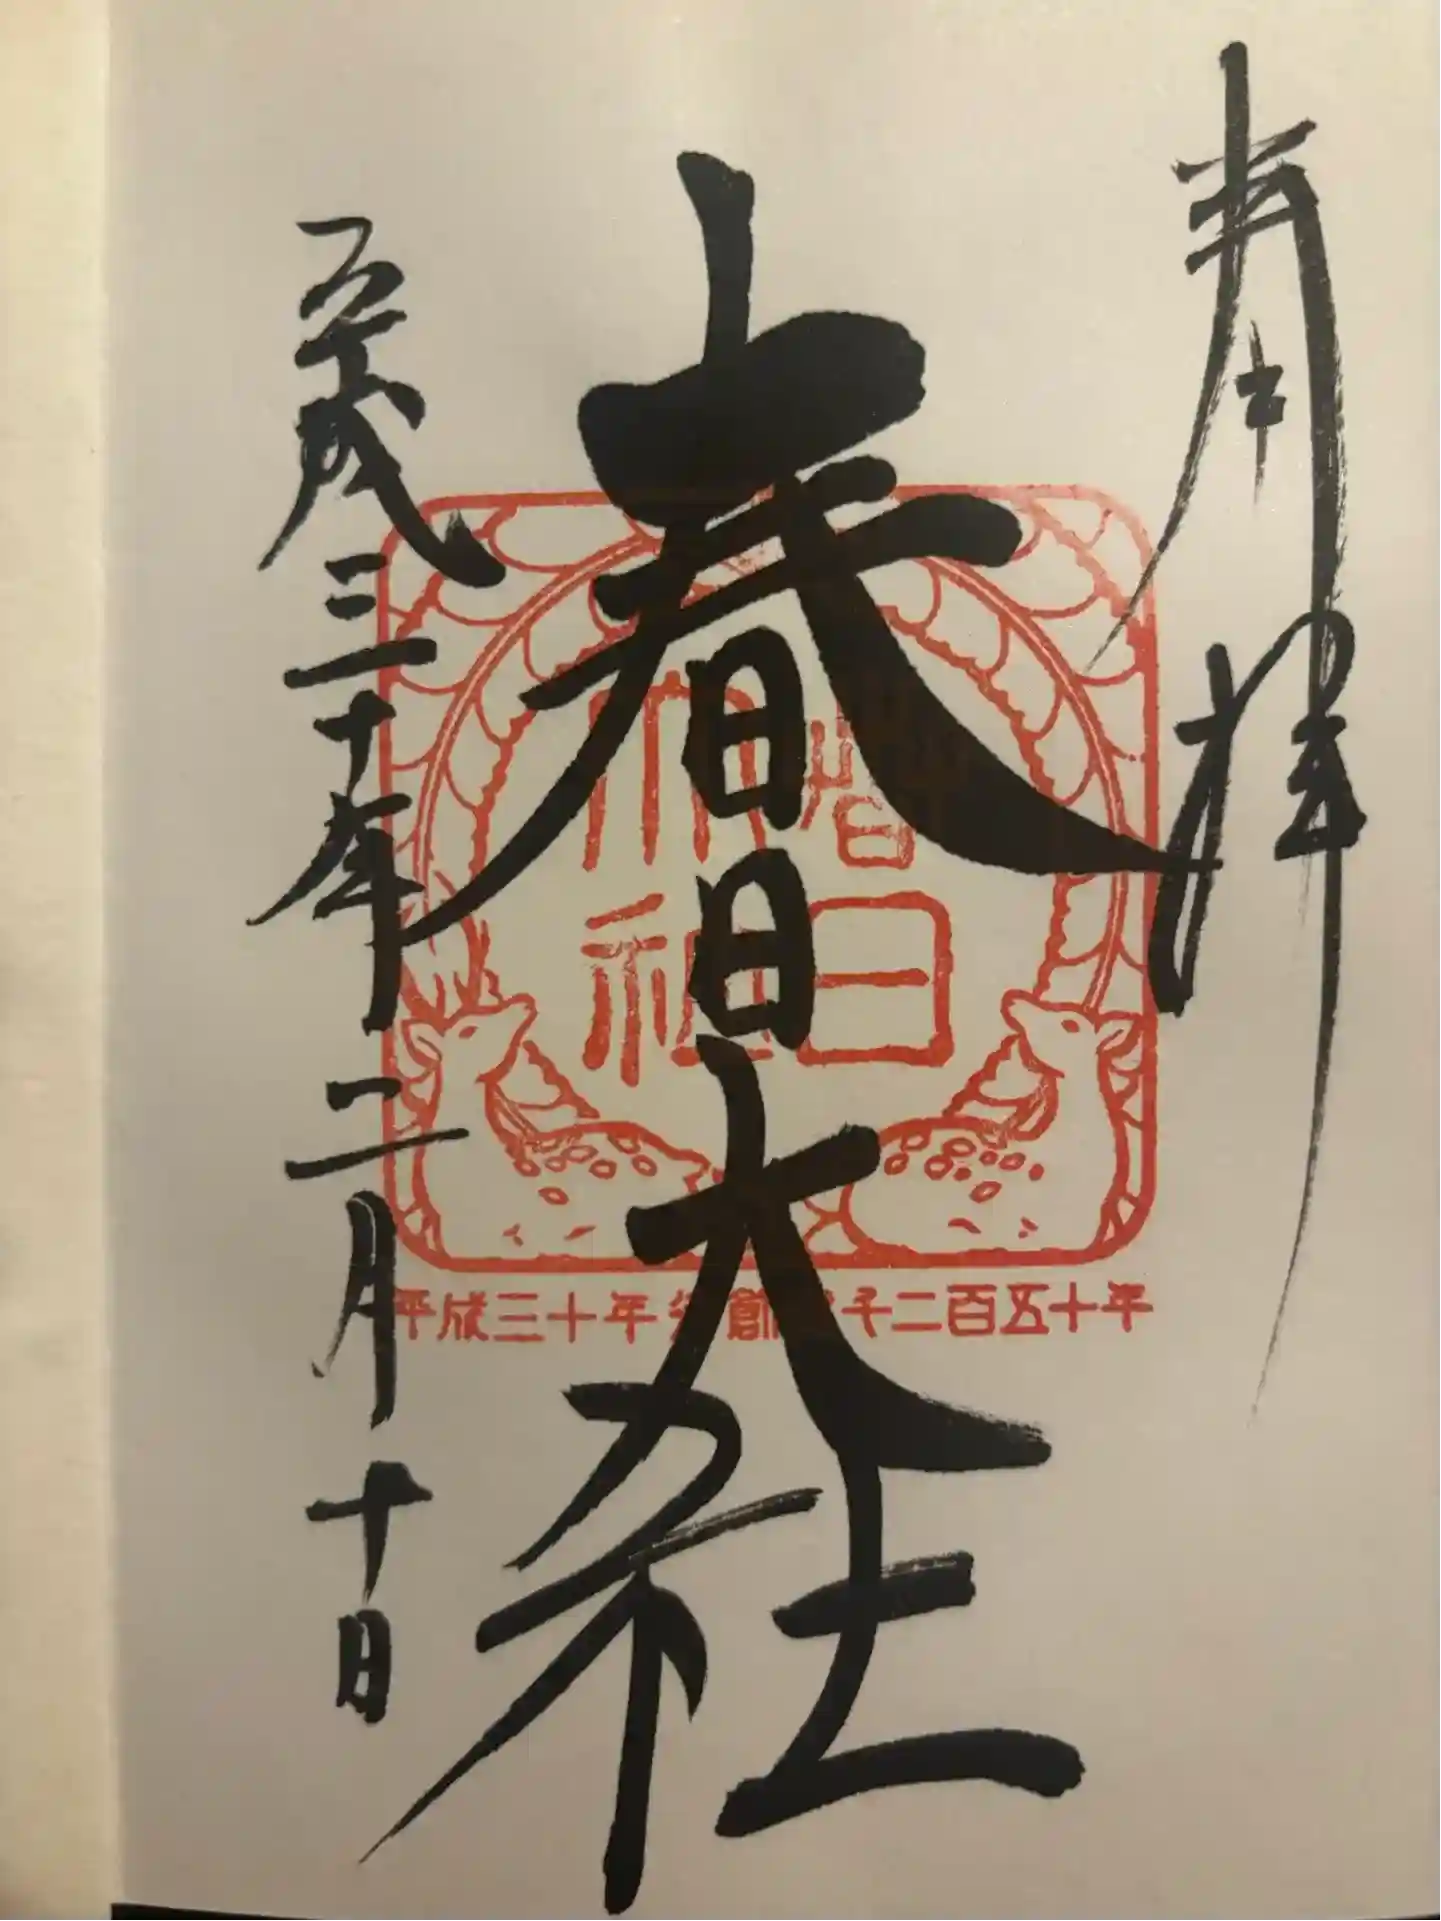 奉拝
春日大社
平成三十年二月十日
春日
大社
平成三十年 御創建千二百五十年